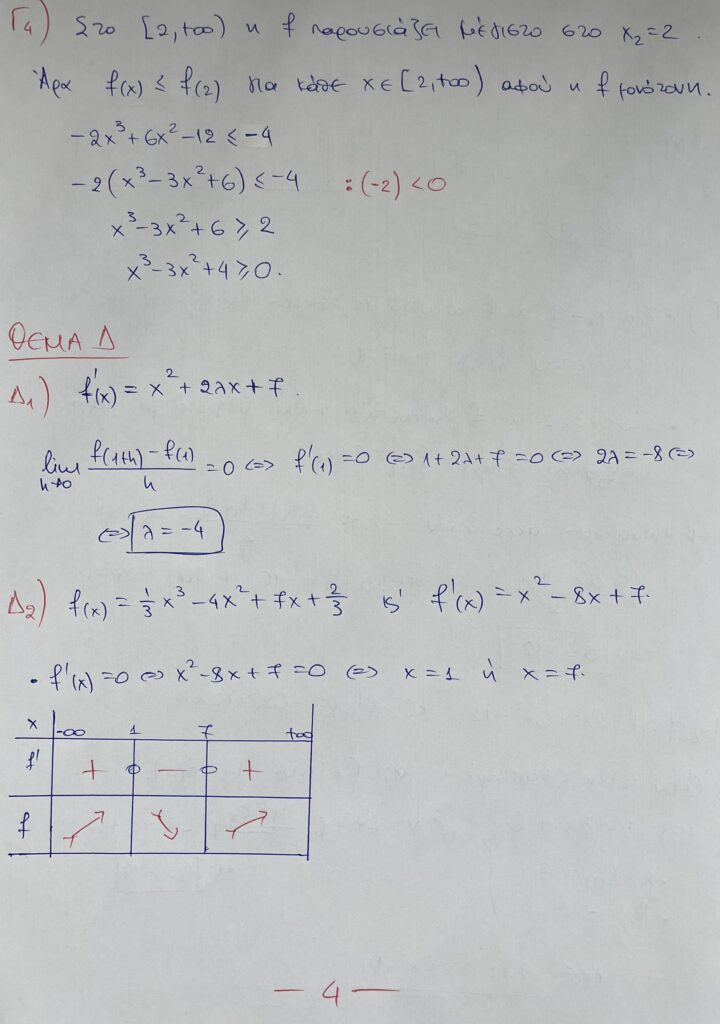 Γ4) Στο [2,+∞) η f παρουσιάζει μέγιστο στο x₂=2.
Άρα f(x) ≤ f(2) για κάθε x∈[2,+∞) αφού η f μονότονη.
-2x³+6x²-12 ≤ -4
-2(x³-3x²+6) ≤ -4 :(-2)<0
x³-3x²+6 ≥ 2
x³-3x²+4 ≥ 0.
ΘΕΜΑ Δ
Δ1) f'(x) = x²+2λx+7.
lim h→0 (f(1+h)-f(1))/h = 0 ⇔ f'(1)=0 ⇔ 1+2λ+7=0 ⇔ 2λ=-8 ⇔
⇔ λ=-4
Δ2) f(x) = 1/3 x³-4x²+7x+2/3 κ' f'(x) = x²-8x+7.
• f'(x)=0 ⇔ x²-8x+7=0 ⇔ x=1 ή x=7.
x -∞ 1 7 +∞
f' + 0 - 0 +
f ↗ ↘ ↗
- 4 -